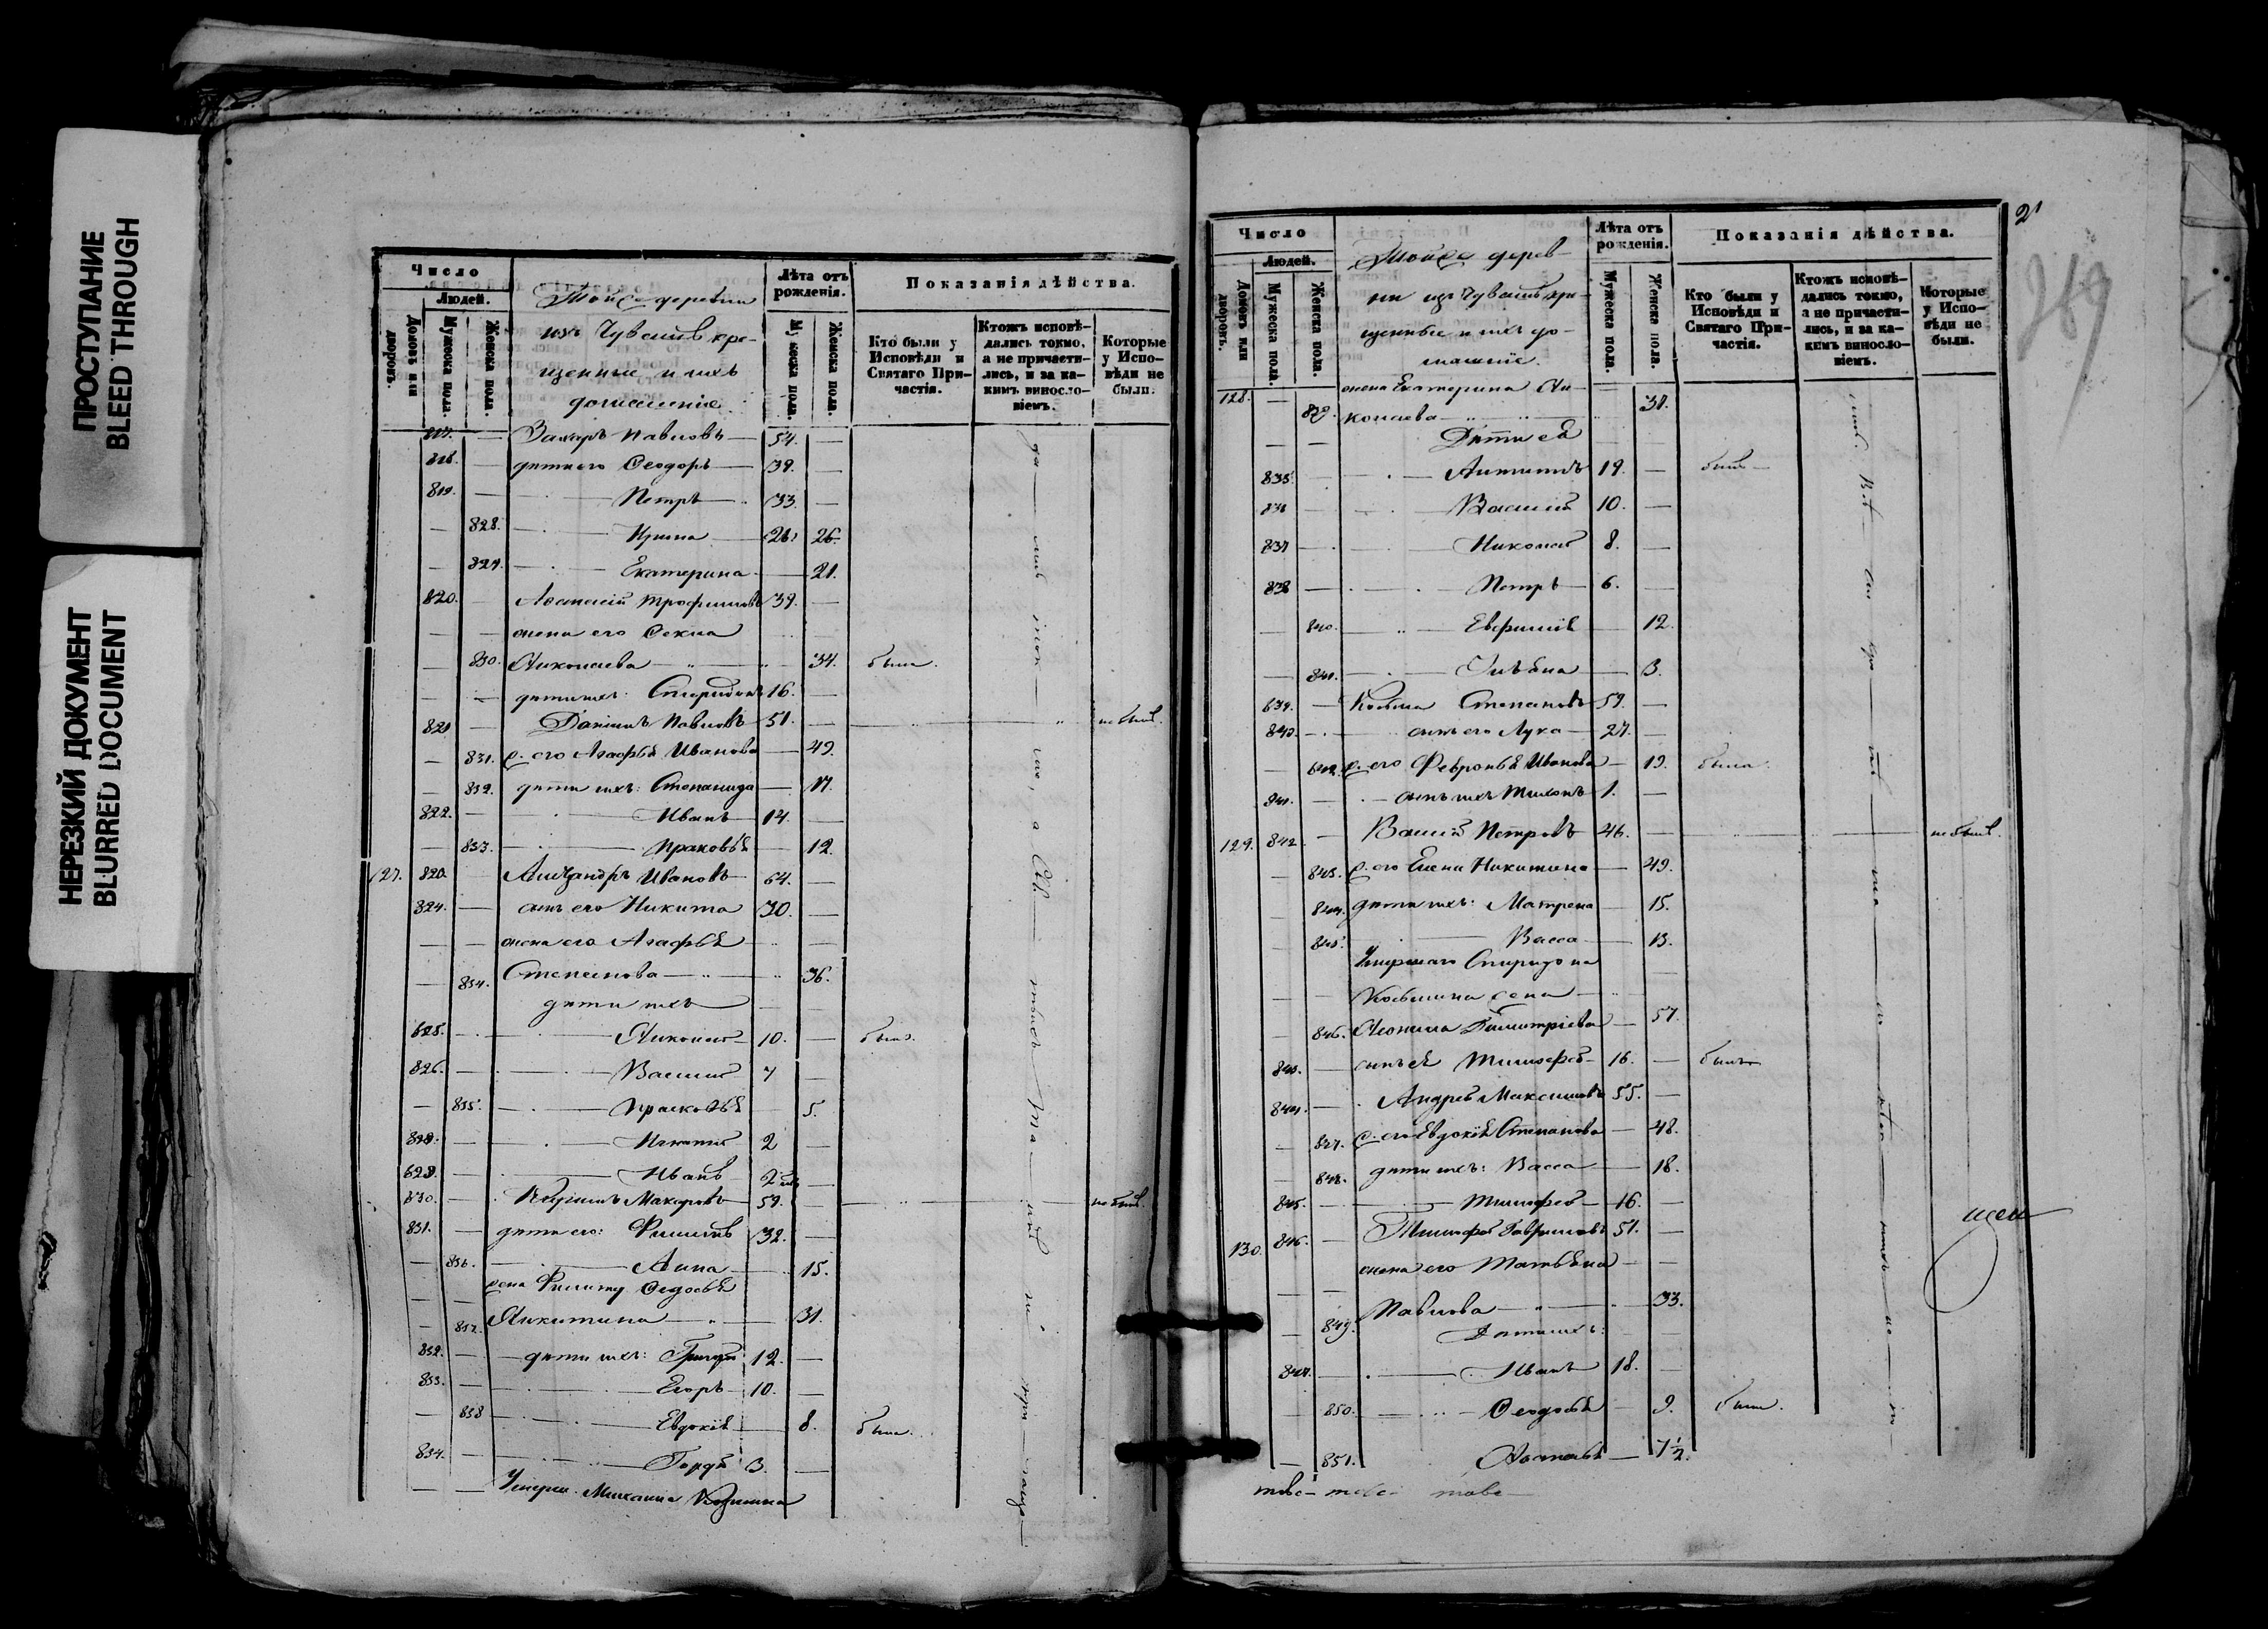 ПРОСТУПАНИЕ
BLEED THROUGH
НЕРЕЗКИЙ ДОКУМЕНТ
BLURRED DOCUMENT
Число
Людей.
Домовъ или дворовъ.
Мужеска пола.
Женска пола.
Тойже деревни
изъ Чувашъ кре-
щенные и ихъ
домашніе
Лѣта отъ рожденія.
Мужеска пола.
Женска пола.
Показанія дѣйства.
Кто были у Исповѣди и Святаго Причастія.
Ктожъ исповѣдались токмо, а не причастились, и за какимъ винословіемъ.
Которые у Исповѣди не были.
817. — Захаръ Павловъ — 54. —
818. — дѣти его Ѳеодоръ — 39. —
819. — Петръ — 33. —
— 828. — Ирина — 26. 26.
— 829. — Екатерина — 21.
820. — Аѳанасій Трофимовъ 39. —
— — жена его Ѳекла
— 830. Николаева — 34. была.
— — дѣти ихъ: Спиридонъ 16. —
821 — Даніилъ Павловъ — 51. — не былъ.
— 831. ж. его Агафья Иванова — 49.
— 832. дѣти ихъ: Степанида — 17.
822. — Иванъ — 14. —
— 833. — Праковья — 12.
127. 823. Александръ Ивановъ — 64. —
824. — сынъ его Никита 30. —
— — жена его Агафья — —
— 834. Степанова — 36.
дѣти ихъ — —
828. — Николай — 10. — былъ.
826. — Василій 7 —
— 835. — Прасковья — 5.
— Игнатій 2 —
629. — Иванъ 2
830. — Макаровъ — 59. — не былъ
831. — дѣти его: Филиппъ 32. —
— 836. — Анна — 15.
жена Филиппу Ѳедосья
— 837. Никитина — 31.
832. — дѣти ихъ: Григорій 12. —
833. — Егоръ — 10. —
— 838 — Евдокія — 8. была.
834. — Гордей 3. —
— — Умерш. Михаила Козмина
21
269
Число
Людей.
Домовъ или дворовъ.
Мужеска пола.
Женска пола.
Тойже дерев-
ни изъ Чувашъ кре-
щенные и ихъ до-
машніе.
Лѣта отъ рожденія.
Мужеска пола.
Женска пола.
Показанія дѣйства.
Кто были у Исповѣди и Святаго Причастія.
Ктожъ исповѣдались токмо, а не причастились, и за какимъ винословіемъ.
Которые у Исповѣди не были.
128. — жена Екатерина Ни-
839. колаева — 31.
— — Дѣти ея
835. — 19. — былъ —
836 — Василій 10. —
837 — Николай 8. —
838 — Петръ — 6. —
— 840. — Евфимія — 12.
— 841. — Ульяна — 3.
639. — Козьма Степановъ 59. —
840. — сынъ его Лука — 27. —
— 642. ж. его Февронья Иванова — 19. была.
841. — сынъ ихъ Тихонъ 1. —
129. 842. — Василій Петровъ 46. — не былъ.
— 843. ж. его Елена Никитина — 49.
— 844. дѣти ихъ: Матрена — 15.
— 845. — Васса — 13.
Умершаго Спиридона
— — Козьмина жена —
846. Леонила Димитріева — 57.
843. — сынъ ея Тимофей — 16. — былъ
844. — Андрей Максимовъ 55. —
— 847. ж. его Евдокія Степанова — 48.
— 848. дѣти ихъ: Васса — 18.
845. — Тимофей — 16. —
130. 846. — Тимофей Гавриловъ 51. —
жена его Татьяна — —
— 849. Павлова — 33.
Дѣти ихъ:
847. — Иванъ 18. —
— 850. — Ѳеодосья — 9. была.
— 851. Настасья — 7½.